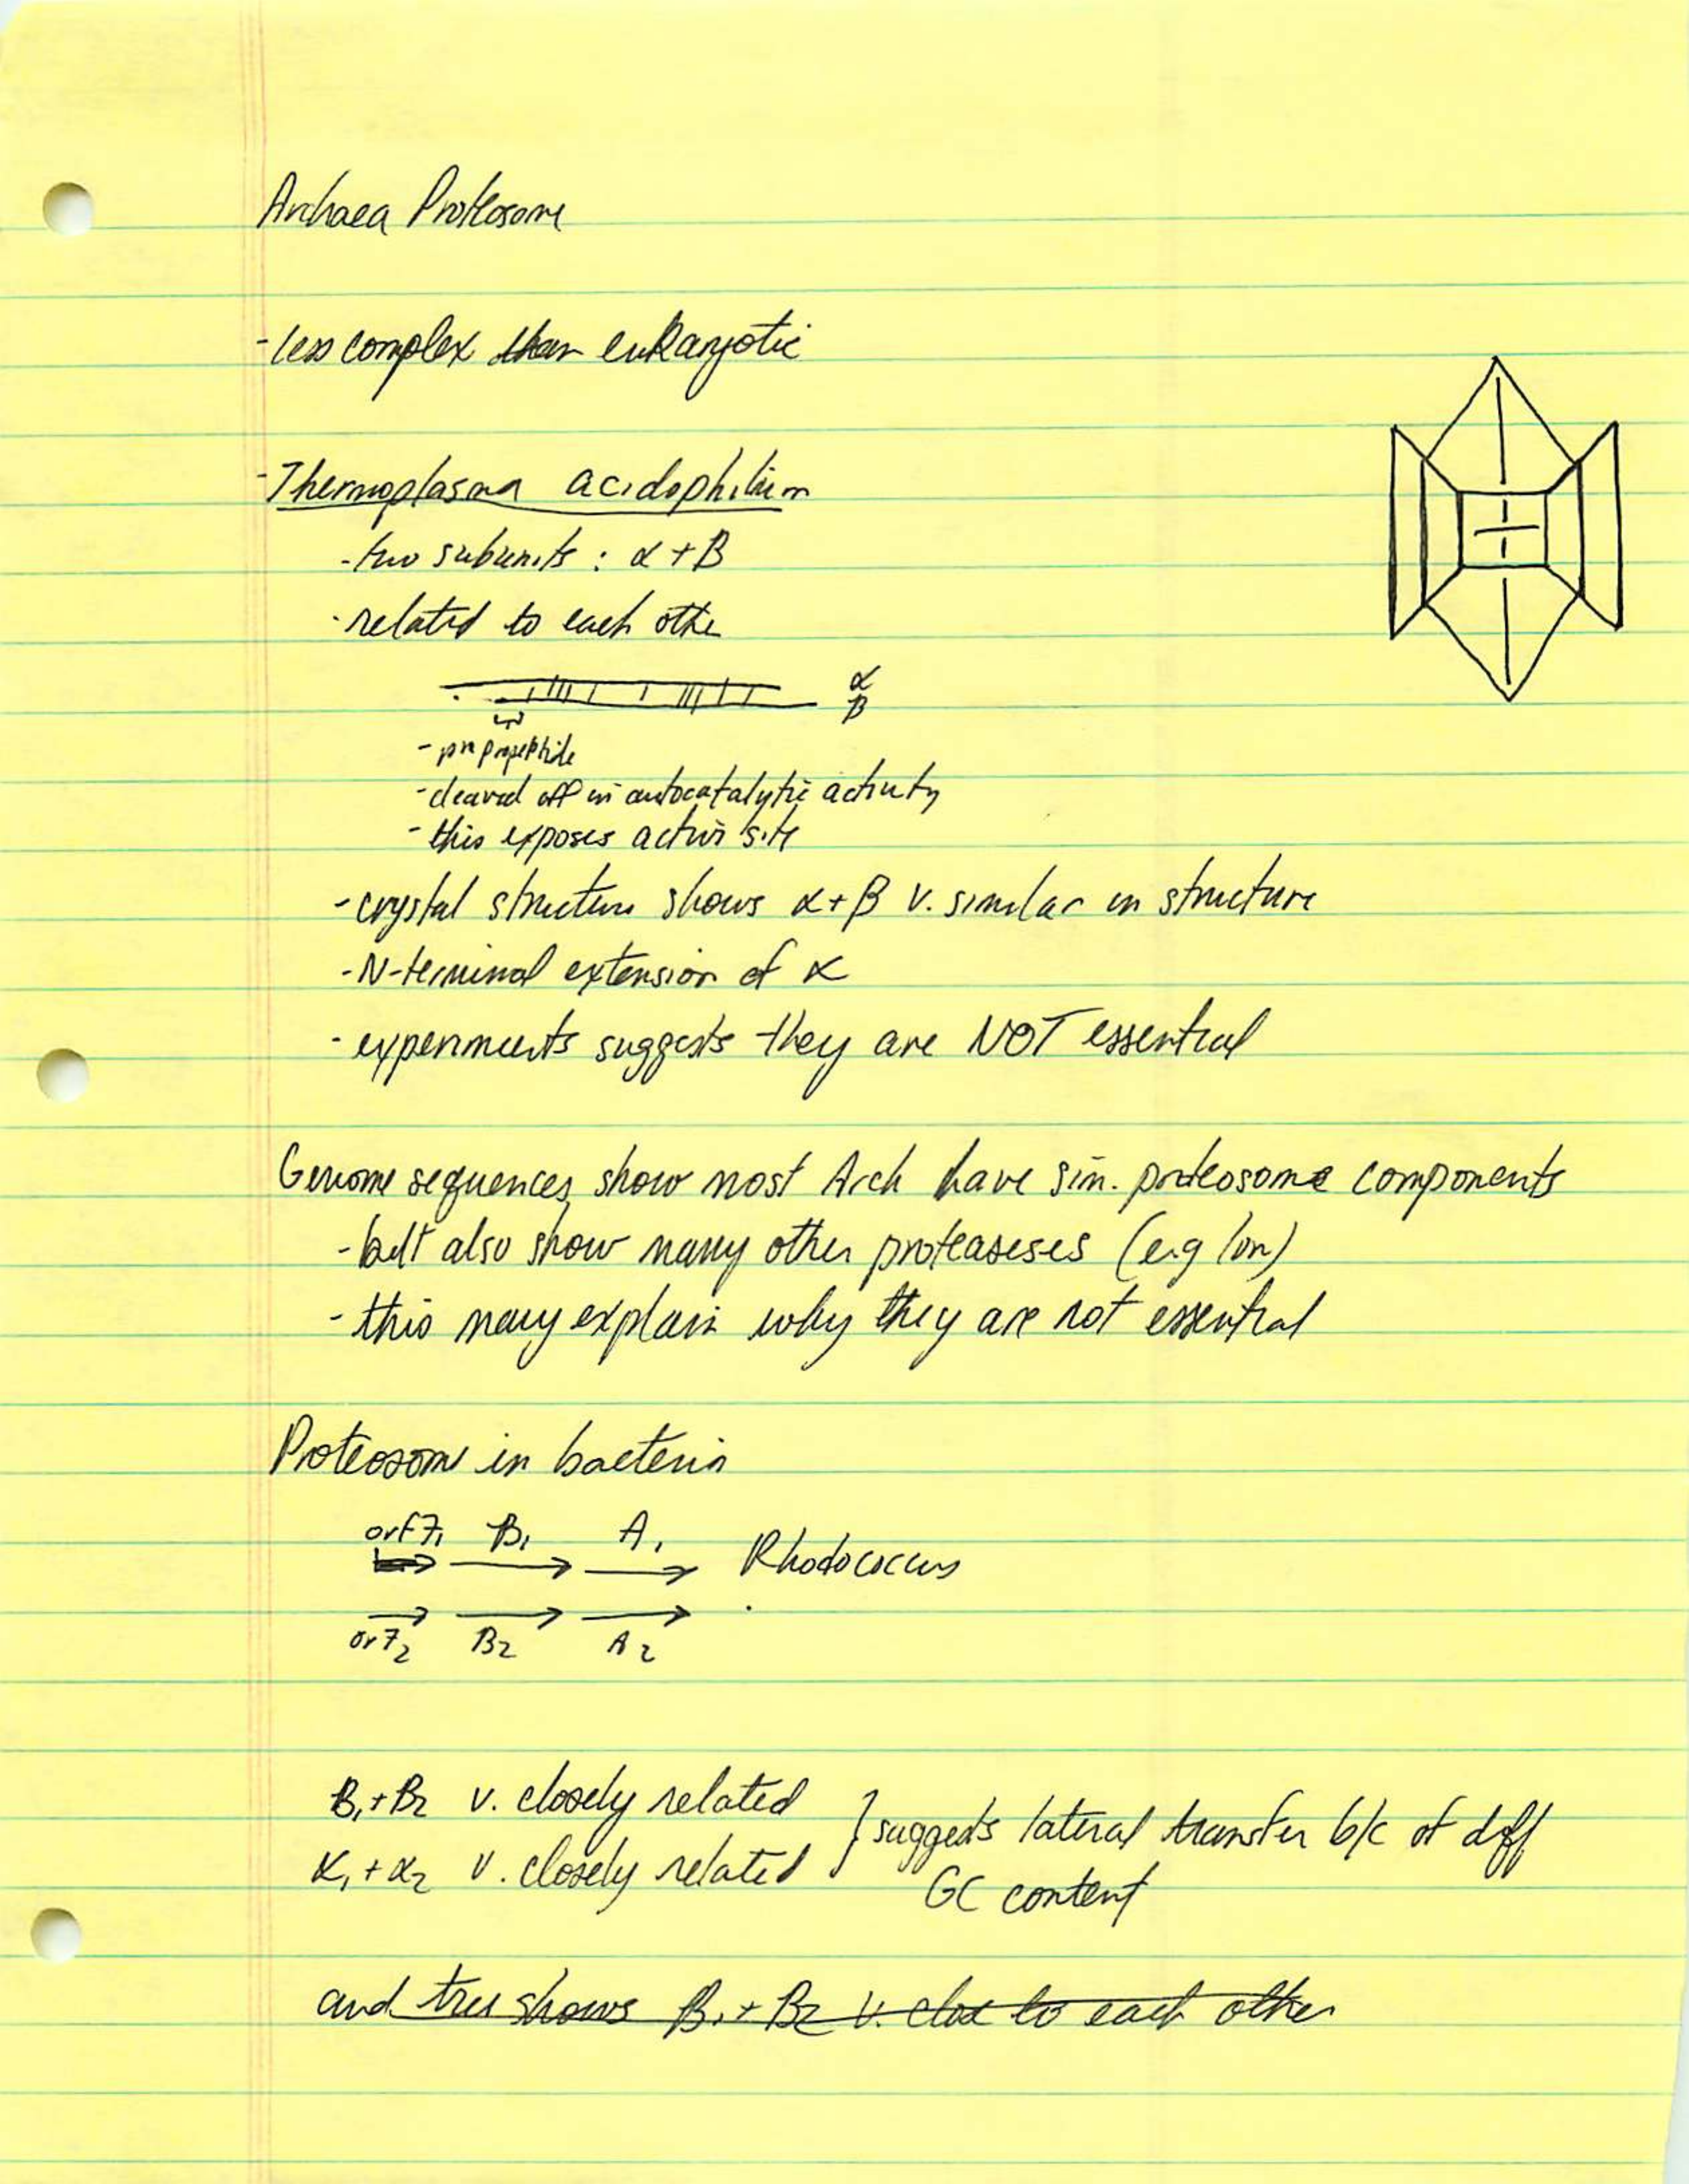 Archaea Proteosome
- less complex than eukaryotic
- Thermoplasma acidophilum
- two subunits : α + B
- related to each othe
α
B
- pre propeptide
- cleaved off in autocatalytic activity
- this exposes active site
- crystal structure shows α + β v. similar in structure
- N-terminal extension of α
- experiments suggests they are NOT essential
Genome sequences show most Arch have sim. proteosome components
- but also show many other proteaseses (e.g lon)
- this may explain why they are not essential
Proteosome in bacteria
orf7₁ B₁ A₁ Rhodococcus
orf7₂ B₂ A₂
B₁ + B₂ v. closely related } suggests lateral transfer b/c of diff
α₁ + α₂ v. closely related GC content
and tree shows B₁ + B₂ v. close to each other